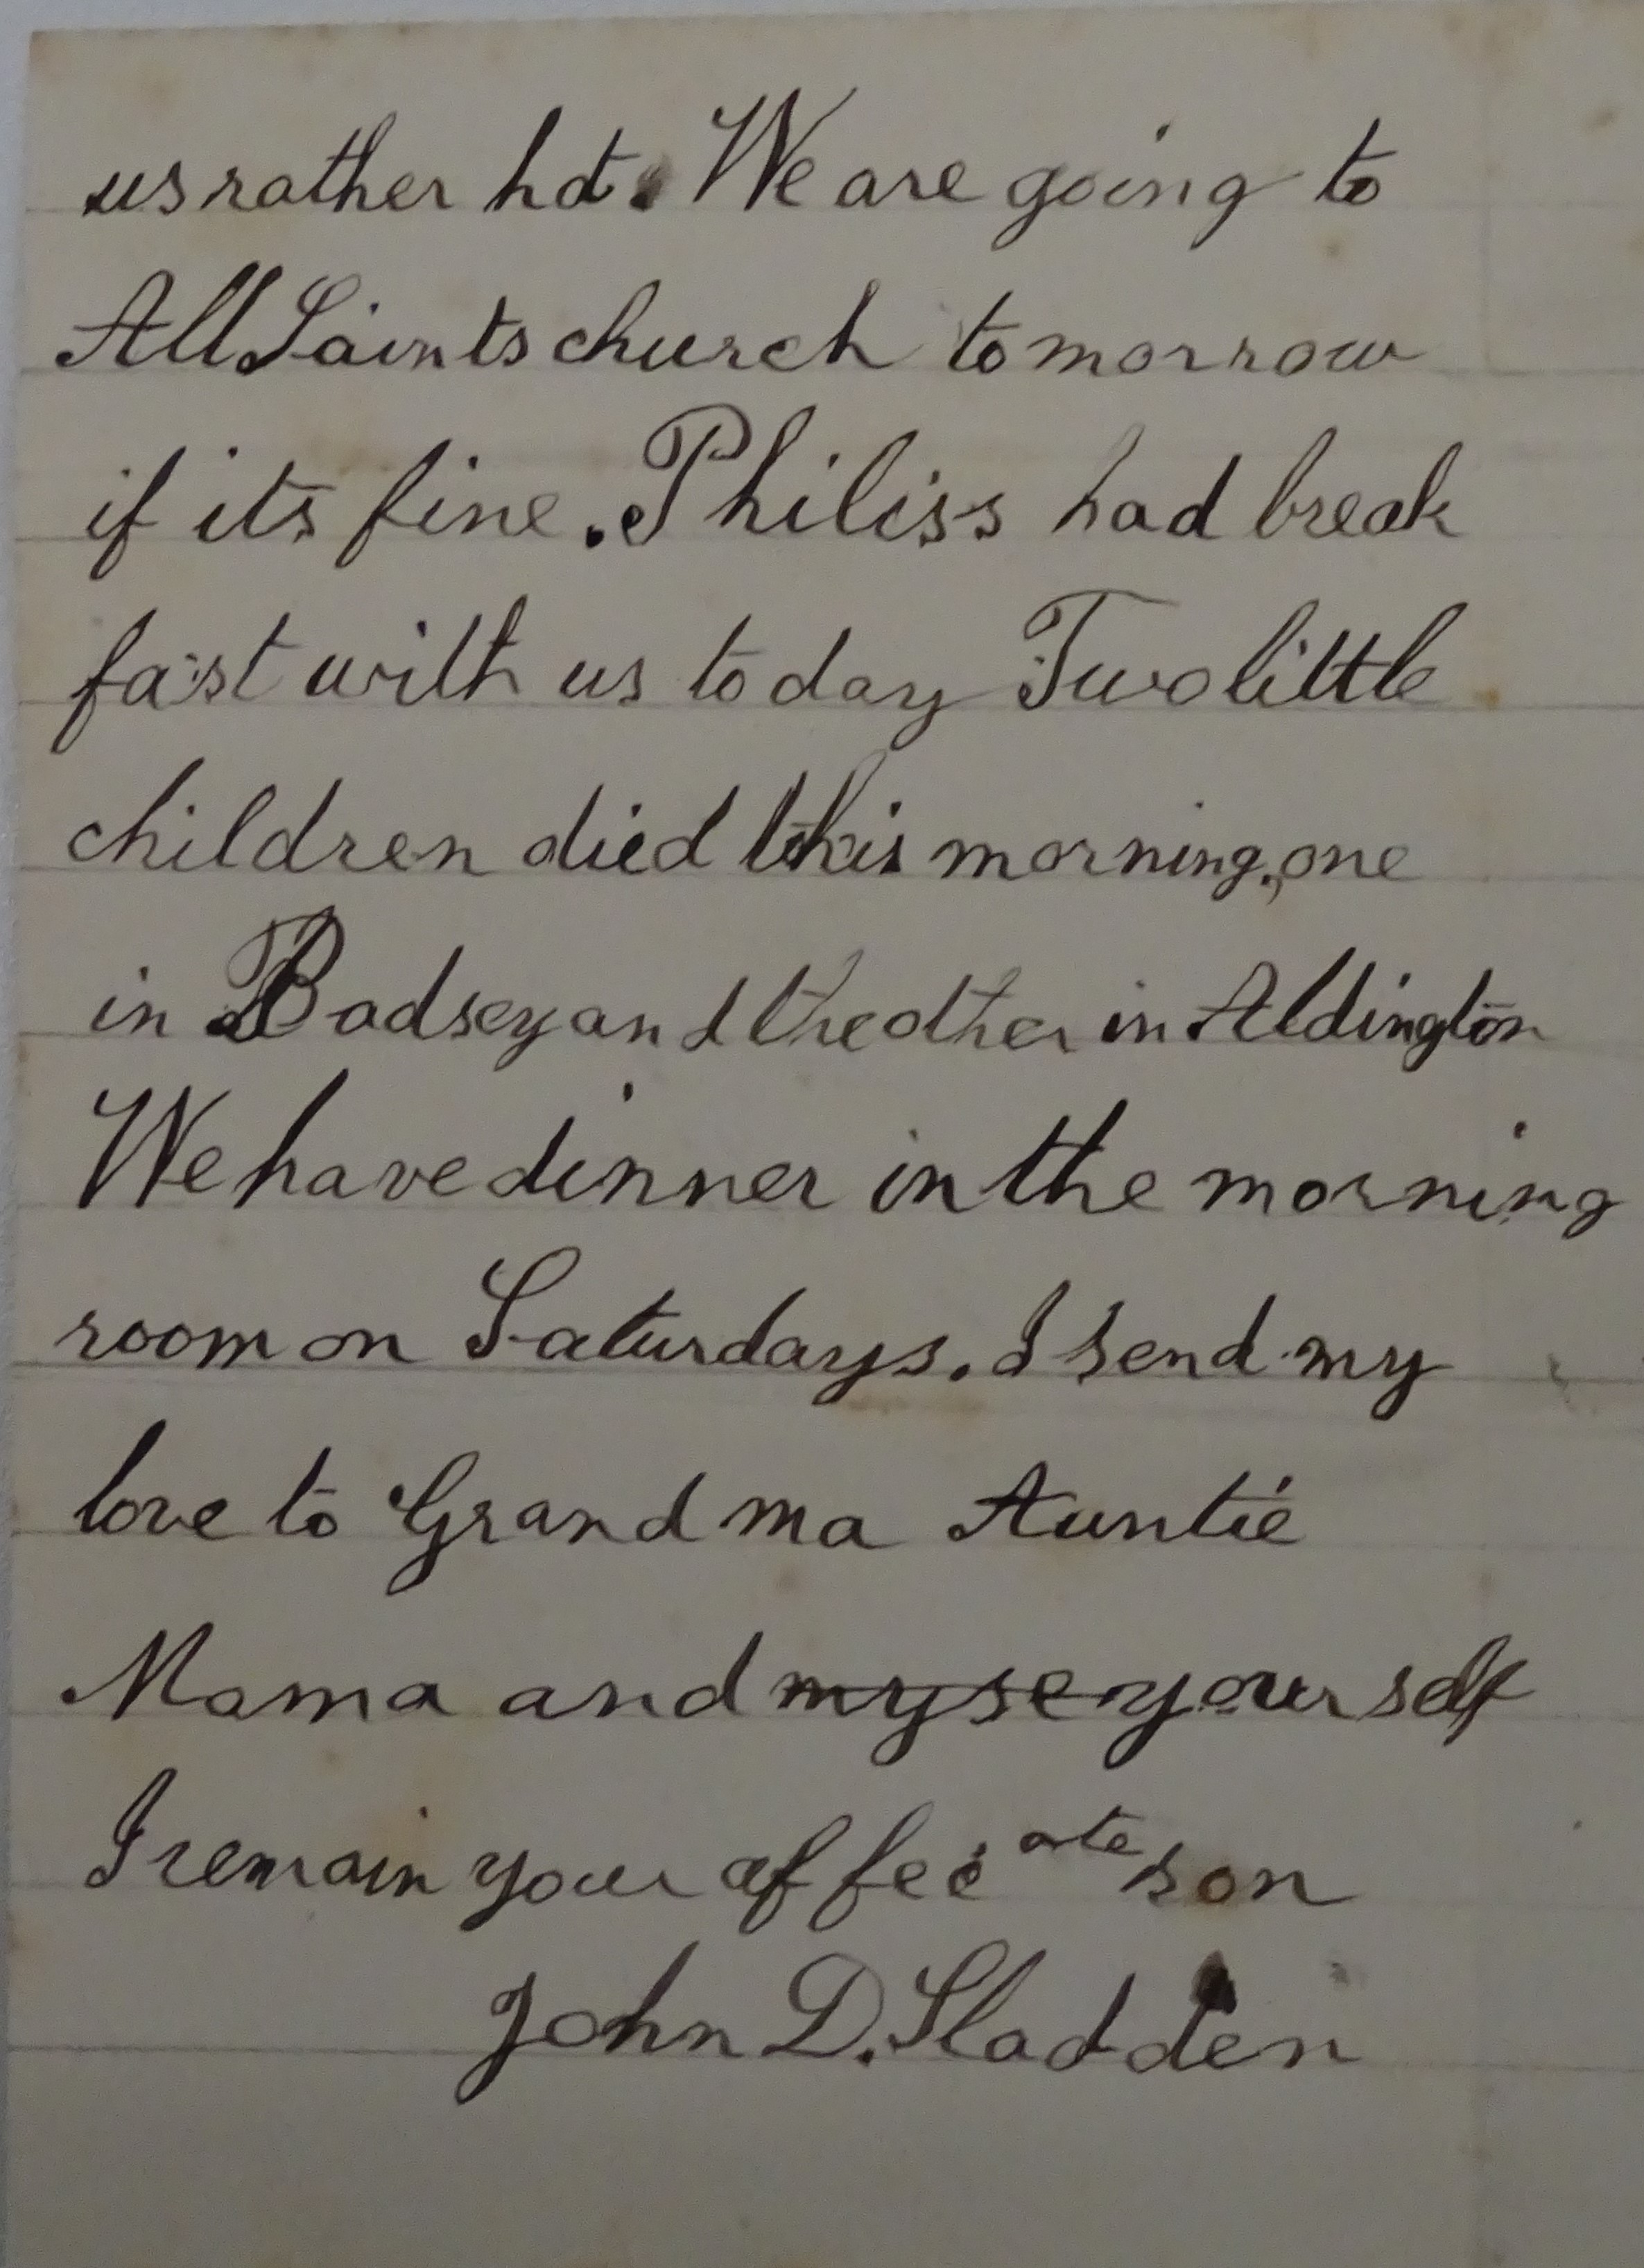 us rather hot. We are going to
All Saints church tomorrow
if its fine. Philiss had break
fast with us to day Two little
children died this morning, one
in Badsey and the other in Aldington
We have dinner in the morning
room on Saturdays. I send my
love to Grand ma Auntie
Mama and myse yourself
I remain your affec ate son
John D. Sladden